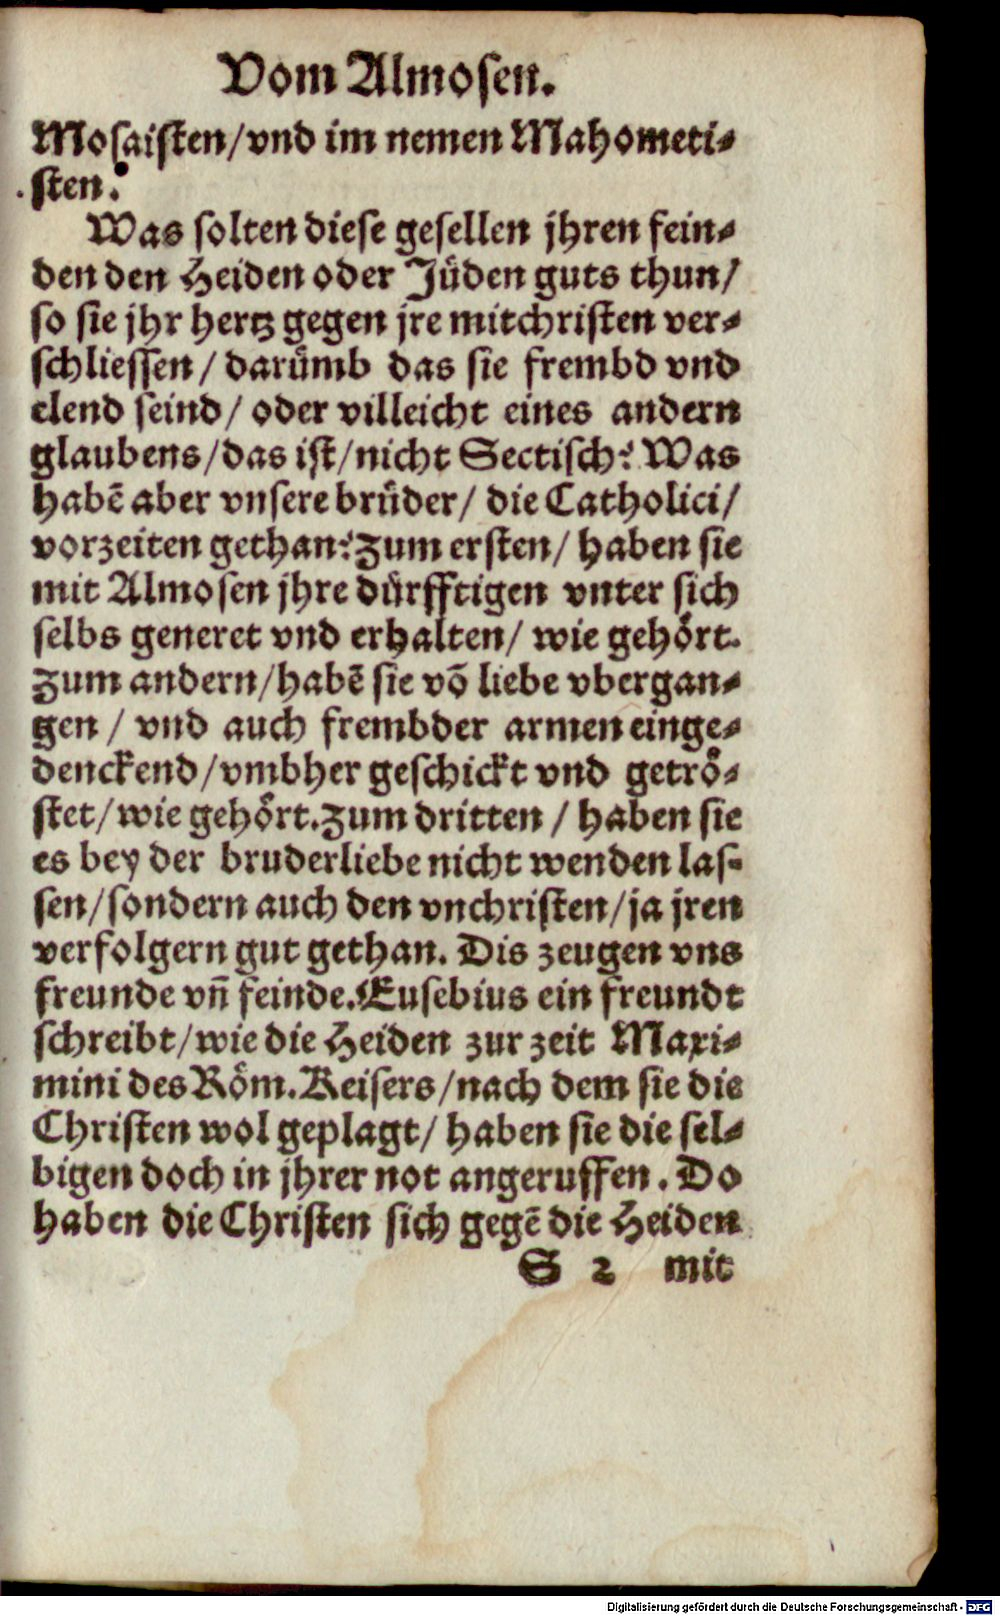 Vom Almosen.
Mosaisten/vnd im nemen Mahometi-
sten?
Was solten diese gesellen jhren fein-
den den Heiden oder Jüden guts thun/
so sie jhr hertz gegen jre mitchristen ver-
schliessen/ darümb das sie frembd vnd
elend seind/ oder villeicht eines andern
glaubens/das ist/nicht Sectisch? Was
habē aber vnsere brüder/ die Catholici/
vorzeiten gethan? Zum ersten/ haben sie
mit Almosen jhre dürfftigen vnter sich
selbs generet vnd erhalten/ wie gehört.
Zum andern/habē sie võ liebe vbergan-
gen/ vnd auch frembder armen einge-
denckend/vmbher geschickt vnd getrö-
stet/wie gehört. Zum dritten/ haben sie
es bey der bruderliebe nicht wenden las-
sen/sondern auch den vnchristen/ja jren
verfolgern gut gethan. Dis zeugen vns
freunde vñ feinde. Eusebius ein freundt
schreibt/wie die Heiden zur zeit Maxi-
mini des Röm. Keisers/nach dem sie die
Christen wol geplagt/ haben sie die sel-
bigen doch in jhrer not angeruffen. Do
haben die Christen sich gegē die Heiden
S 2 mit
Digitalisierung gefördert durch die Deutsche Forschungsgemeinschaft - DFG